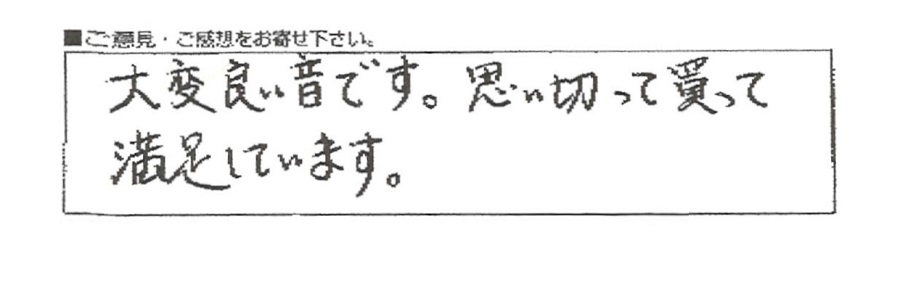 ■ご意見・ご感想をお寄せ下さい。
大変良い音です。思い切って買って
満足しています。